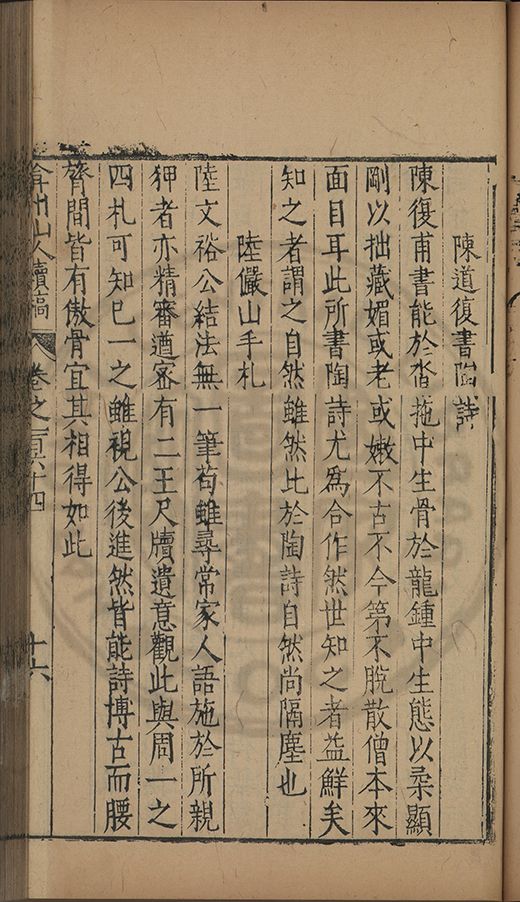 陳道復書陶詩
陳復甫書能於沓拖中生骨於龍鍾中生態以柔顯
剛以拙藏媚或老或嫩不古不今第不脫散僧本來
面目耳此所書陶詩尤爲合作然世知之者益鮮矣
知之者謂之自然雖然比於陶詩自然尚隔塵也
陸儼山手札
陸文裕公結法無一筆苟雖尋常家人語施於所親
狎者亦精審遒密有二王尺牘遺意觀此與周一之
四札可知已一之雖視公後進然皆能詩博古而腰
膂間皆有傲骨宜其相得如此
弇州山人續稿 卷之一百六十四 十六